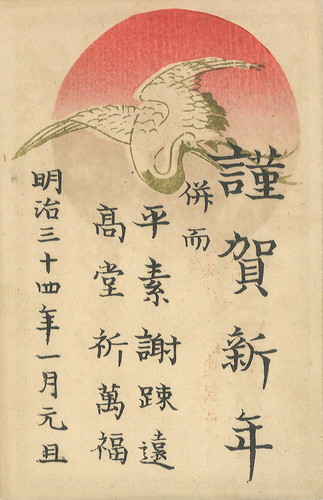 謹賀新年
併而
平素謝踈遠
高堂祈萬福
明治三十四年一月元旦